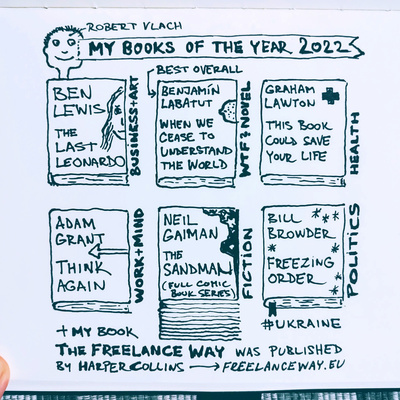 ROBERT VLACH
MY BOOKS OF THE YEAR 2022
BEST OVERALL
BEN
LEWIS
THE
LAST
LEONARDO
BUSINESS+ART
BENJAMÍN
LABATUT
WHEN WE
CEASE TO
UNDERSTAND
THE WORLD
WTF? NOVEL
GRAHAM
LAWTON
THIS BOOK
COULD SAVE
YOUR LIFE
HEALTH
ADAM
GRANT
THINK
AGAIN
WORK+MIND
NEIL
GAIMAN
THE
SANDMAN
(FULL COMIC
BOOK SERIES)
FICTION
BILL
BROWDER
FREEZING
ORDER
POLITICS
#UKRAINE
+ MY BOOK
THE FREELANCE WAY WAS PUBLISHED
BY HARPER COLLINS → FREELANCEWAY.EU